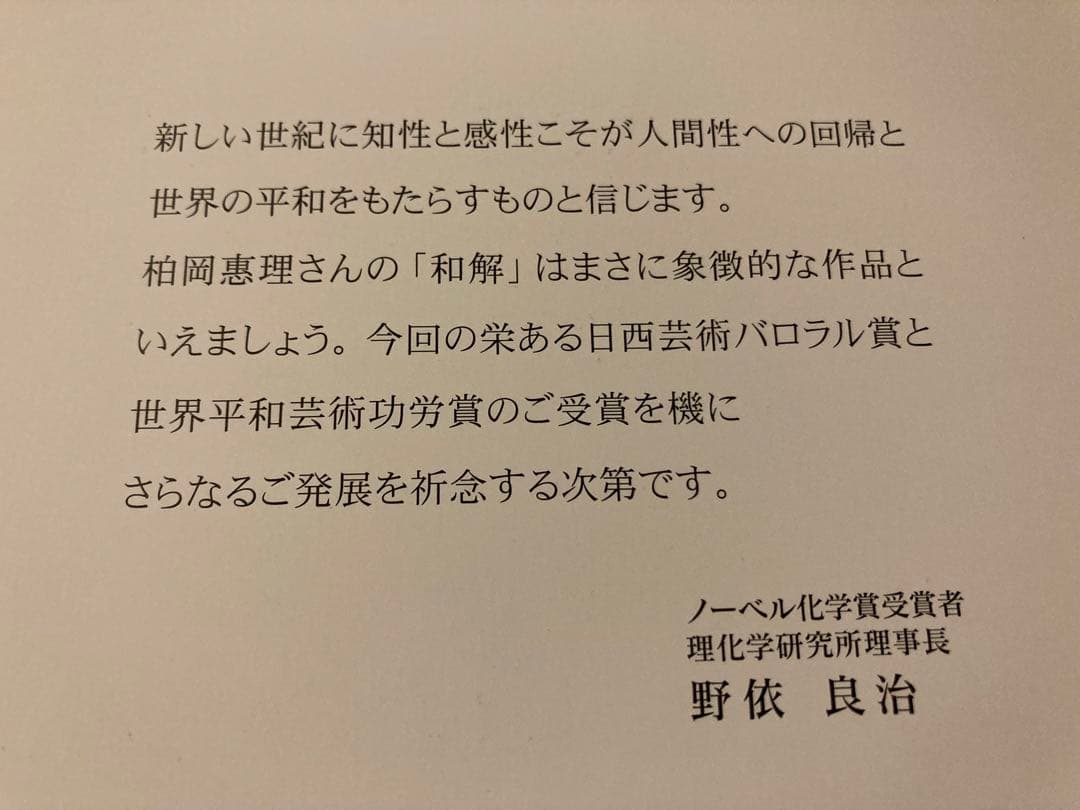 新しい世紀に知性と感性こそが人間性への回帰と
世界の平和をもたらすものと信じます。
柏岡惠理さんの「和解」はまさに象徴的な作品と
いえましょう。今回の栄ある日西芸術バロラル賞と
世界平和芸術功労賞のご受賞を機に
さらなるご発展を祈念する次第です。
ノーベル化学賞受賞者
理化学研究所理事長
野依 良治